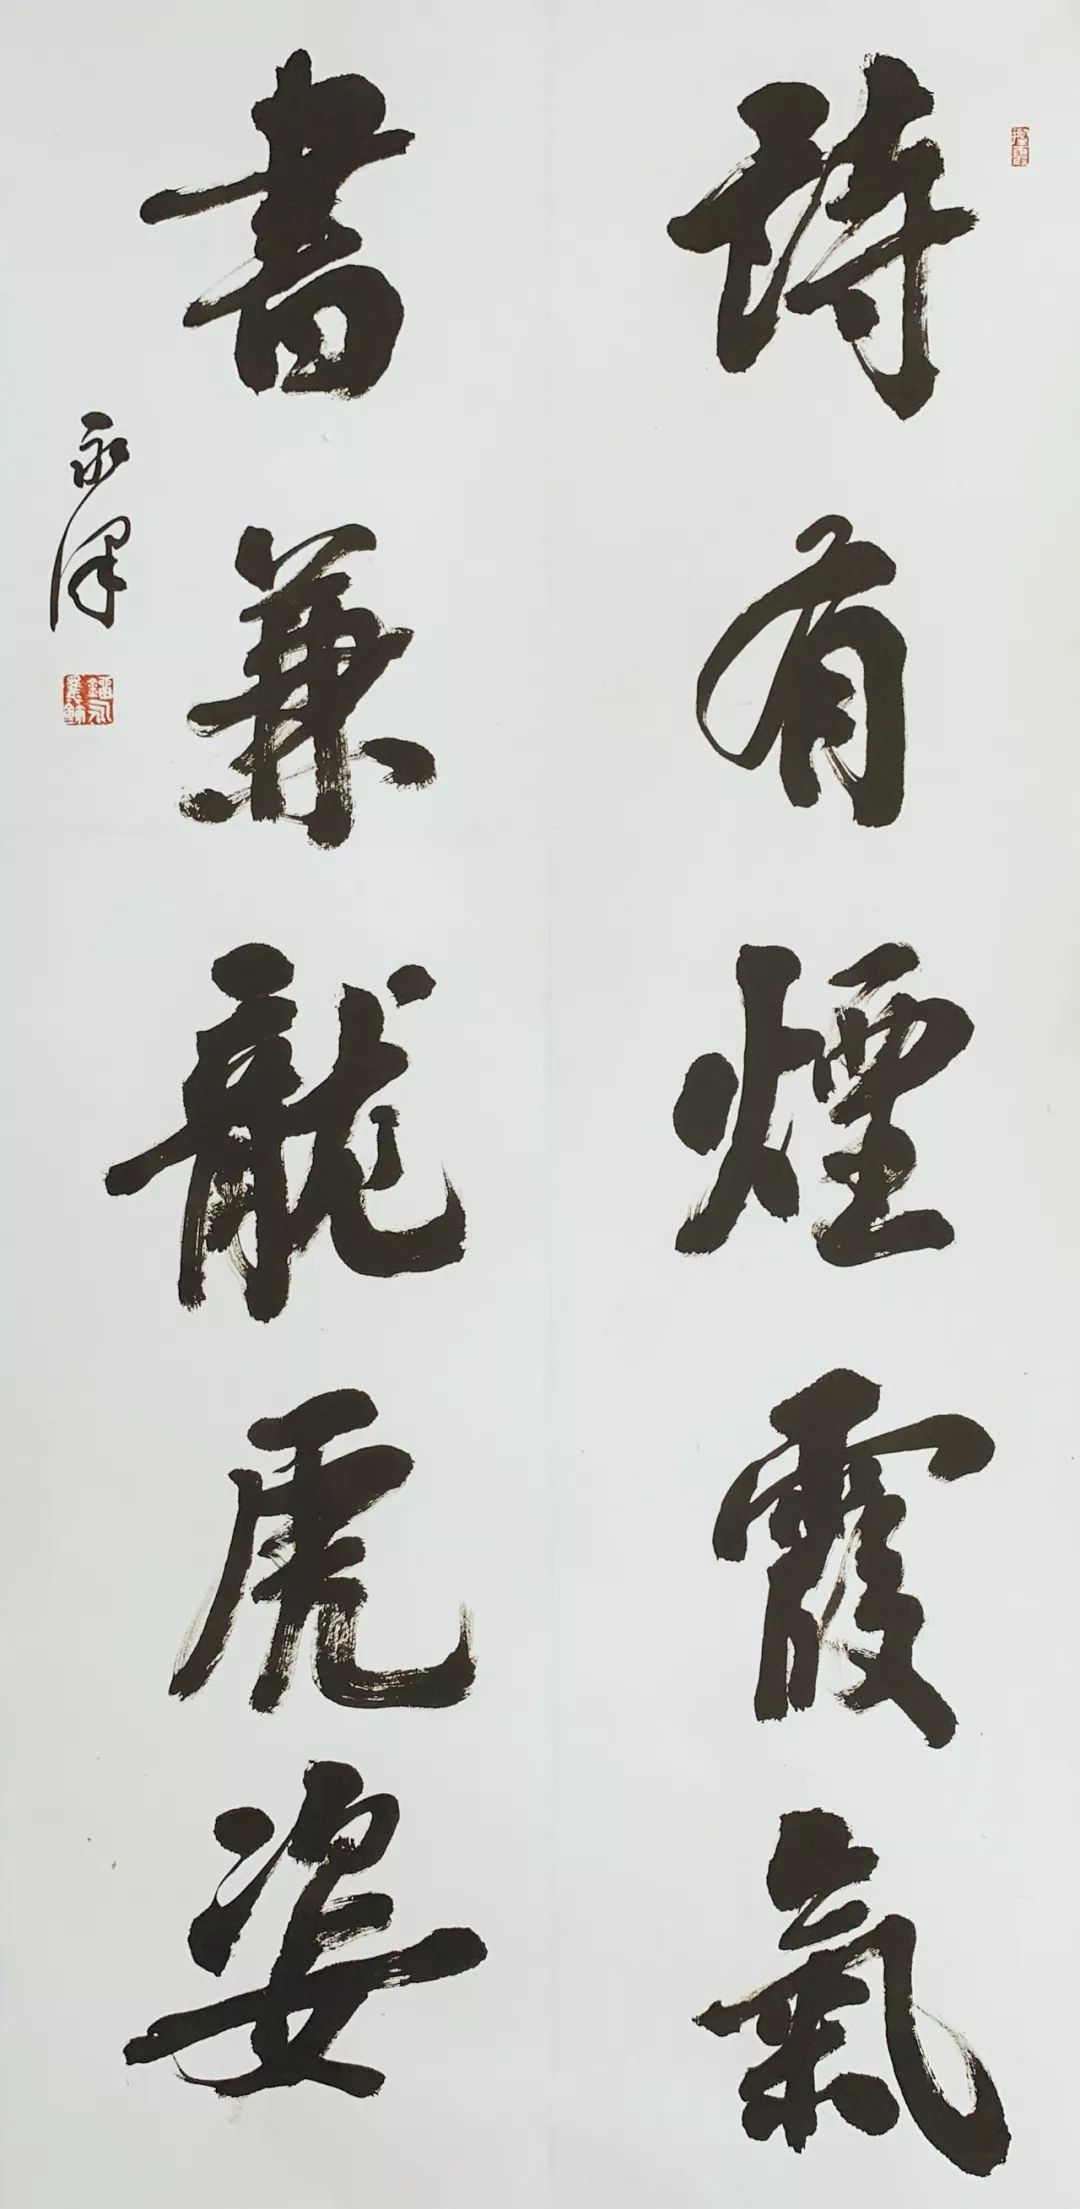 詩有煙霞氣
書兼龍虎姿
永澤